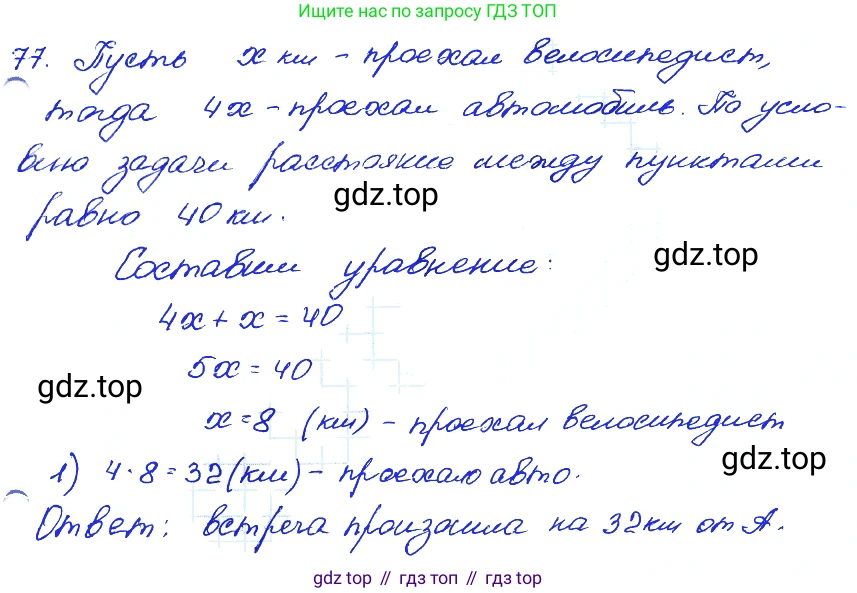 Ищите нас по запросу ГДЗ ТОП
77. Пусть х км - проехал велосипедист,
тогда 4х - проехал автомобиль. По усло-
вию задачи расстояние между пунктами
равно 40 км.
gdz.top
Составим уравнение:
gdz.top
4х + х = 40
5х = 40
gdz.top
х = 8 (км) - проехал велосипедист
1) 4 · 8 = 32 (км) - проехало авто.
gdz.top
Ответ: встреча произошла на 32 км от А.
gdz top // гдз топ // гдз top